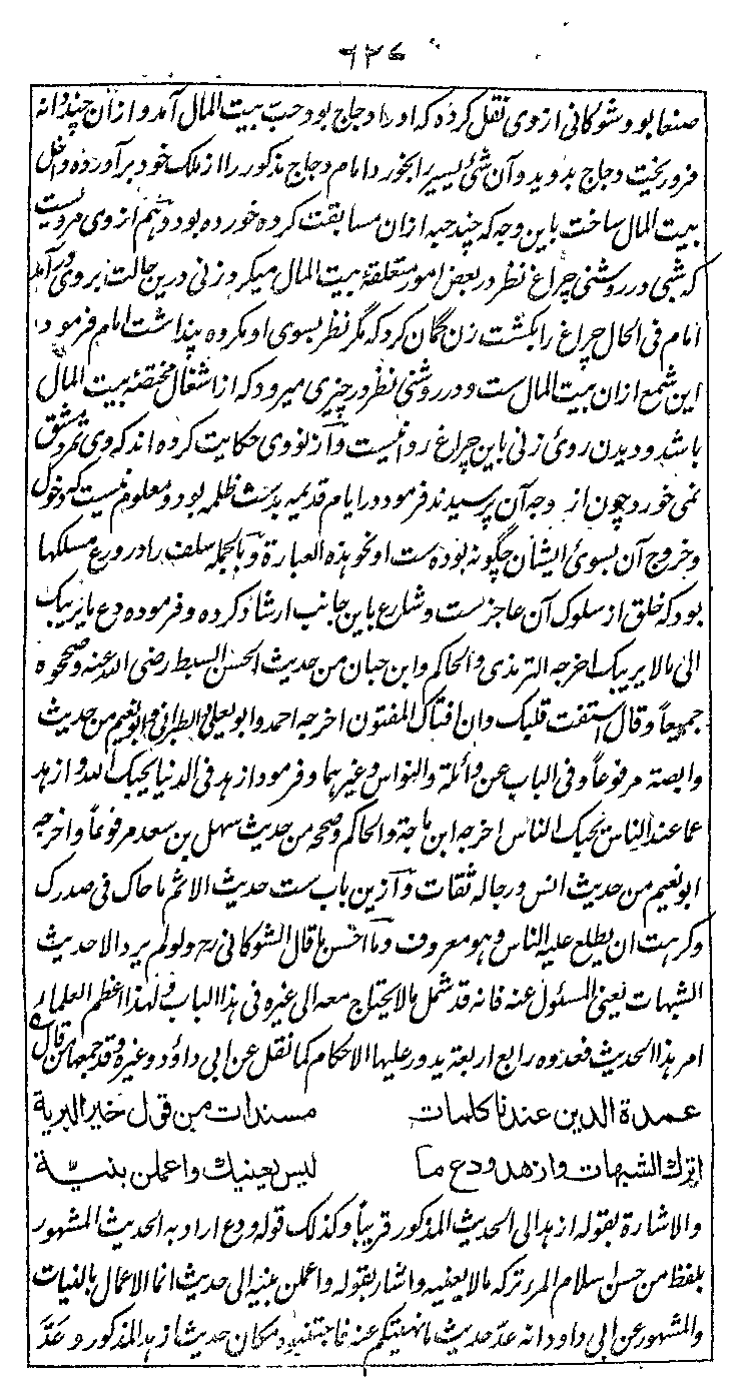 ۶۲۷
صنعا بود و شوکانی از وی نقل کرده که او را دجاج بود حب بیت المال آمد و ازان چند دانه
فرو ریخت دجاج بدوید و آن شئ یسیر را بخورد امام دجاج مذکور را از ملک خود بر آورده داخل
بیت المال ساخت باین وجه که چند حبه ازان مسابقت کرده خورده بود و هم از وی مرویست
که شبی در روشنی چراغ نظر در بعض امور متعلقهٔ بیت المال میکرد زنی درین حالت بروی در آمد
امام فی الحال چراغ را بکشت زن گمان کرد که مگر نظر بسوی او مکروه پنداشت امام فرمود
این شمع ازان بیت المال ست و در روشنی نظر در چیزی میرود که از اشغال مختصهٔ بیت المال
باشد و دیدن روئ زنی باین چراغ روا نیست و از نووی حکایت کرده اند که وی ثمر دمشق
نمی خورد چون از وجه آن پرسیدند فرمود در ایام قدیمه بدست ظلمه بود و معلوم نیست که دخول
و خروج آن بسوئ ایشان چگونه بوده ست او نحو هذه العبارة و بالجمله سلف را در ورع مسلکها
بود که خلق از سلوک آن عاجز ست و شارع باین جانب ارشاد کرده و فرموده دع ما یریبک
الی ما لا یریبک اخرجه الترمذی والحاکم وابن حبان من حدیث الحسن السبط رضی الله عنه وصححوه
جمیعاً وقال استفت قلبک وان افتاک المفتون اخرجه احمد وابو یعلی والطبرانی وابو نعیم من حدیث
وابصة مرفوعاً وفی الباب عن واثلة والنواس وغیرهما و فرمود ازهد فی الدنیا یحبک الله وازهد
عما عند الناس یحبک الناس اخرجه ابن ماجة والحاکم وصححه من حدیث سهل بن سعد مرفوعاً واخرجه
ابو نعیم من حدیث انس ورجاله ثقات و ازین باب ست حدیث الاثم ما حاک فی صدرک
وکرهت ان یطلع علیه الناس وهو معروف وما احسن ما قال الشوکانی رح ولو لم یرد الا حدیث
الشبهات یعنی المسئول عنه فانه قد شمل ما لا یحتاج معه الی غیره فی هذا الباب ولهذا اعظم العلماء
امر هذا الحدیث فعدوه رابع اربعة یدور علیها الاحکام کما نقل عن ابی داؤد وغیره وقد جمعها من قال
عمدة الدین عندنا کلمات مسندات من قول خیر البریة
اترك الشبهات وازهد ودع ما لیس یعنیك واعملن بنیّة
والاشارة بقوله ازهد الی الحدیث المذکور قریباً وکذلک قوله ودع اراد به الحدیث المشهور
بلفظ من حسن اسلام المرء ترکه ما لا یعنیه واشار بقوله واعملن بنیة الی حدیث انما الاعمال بالنیات
والمشهور عن ابی داود انه عدّ حدیث ما نهیتکم عنه فاجتنبوه مکان حدیث ازهد المذکور وعدّ